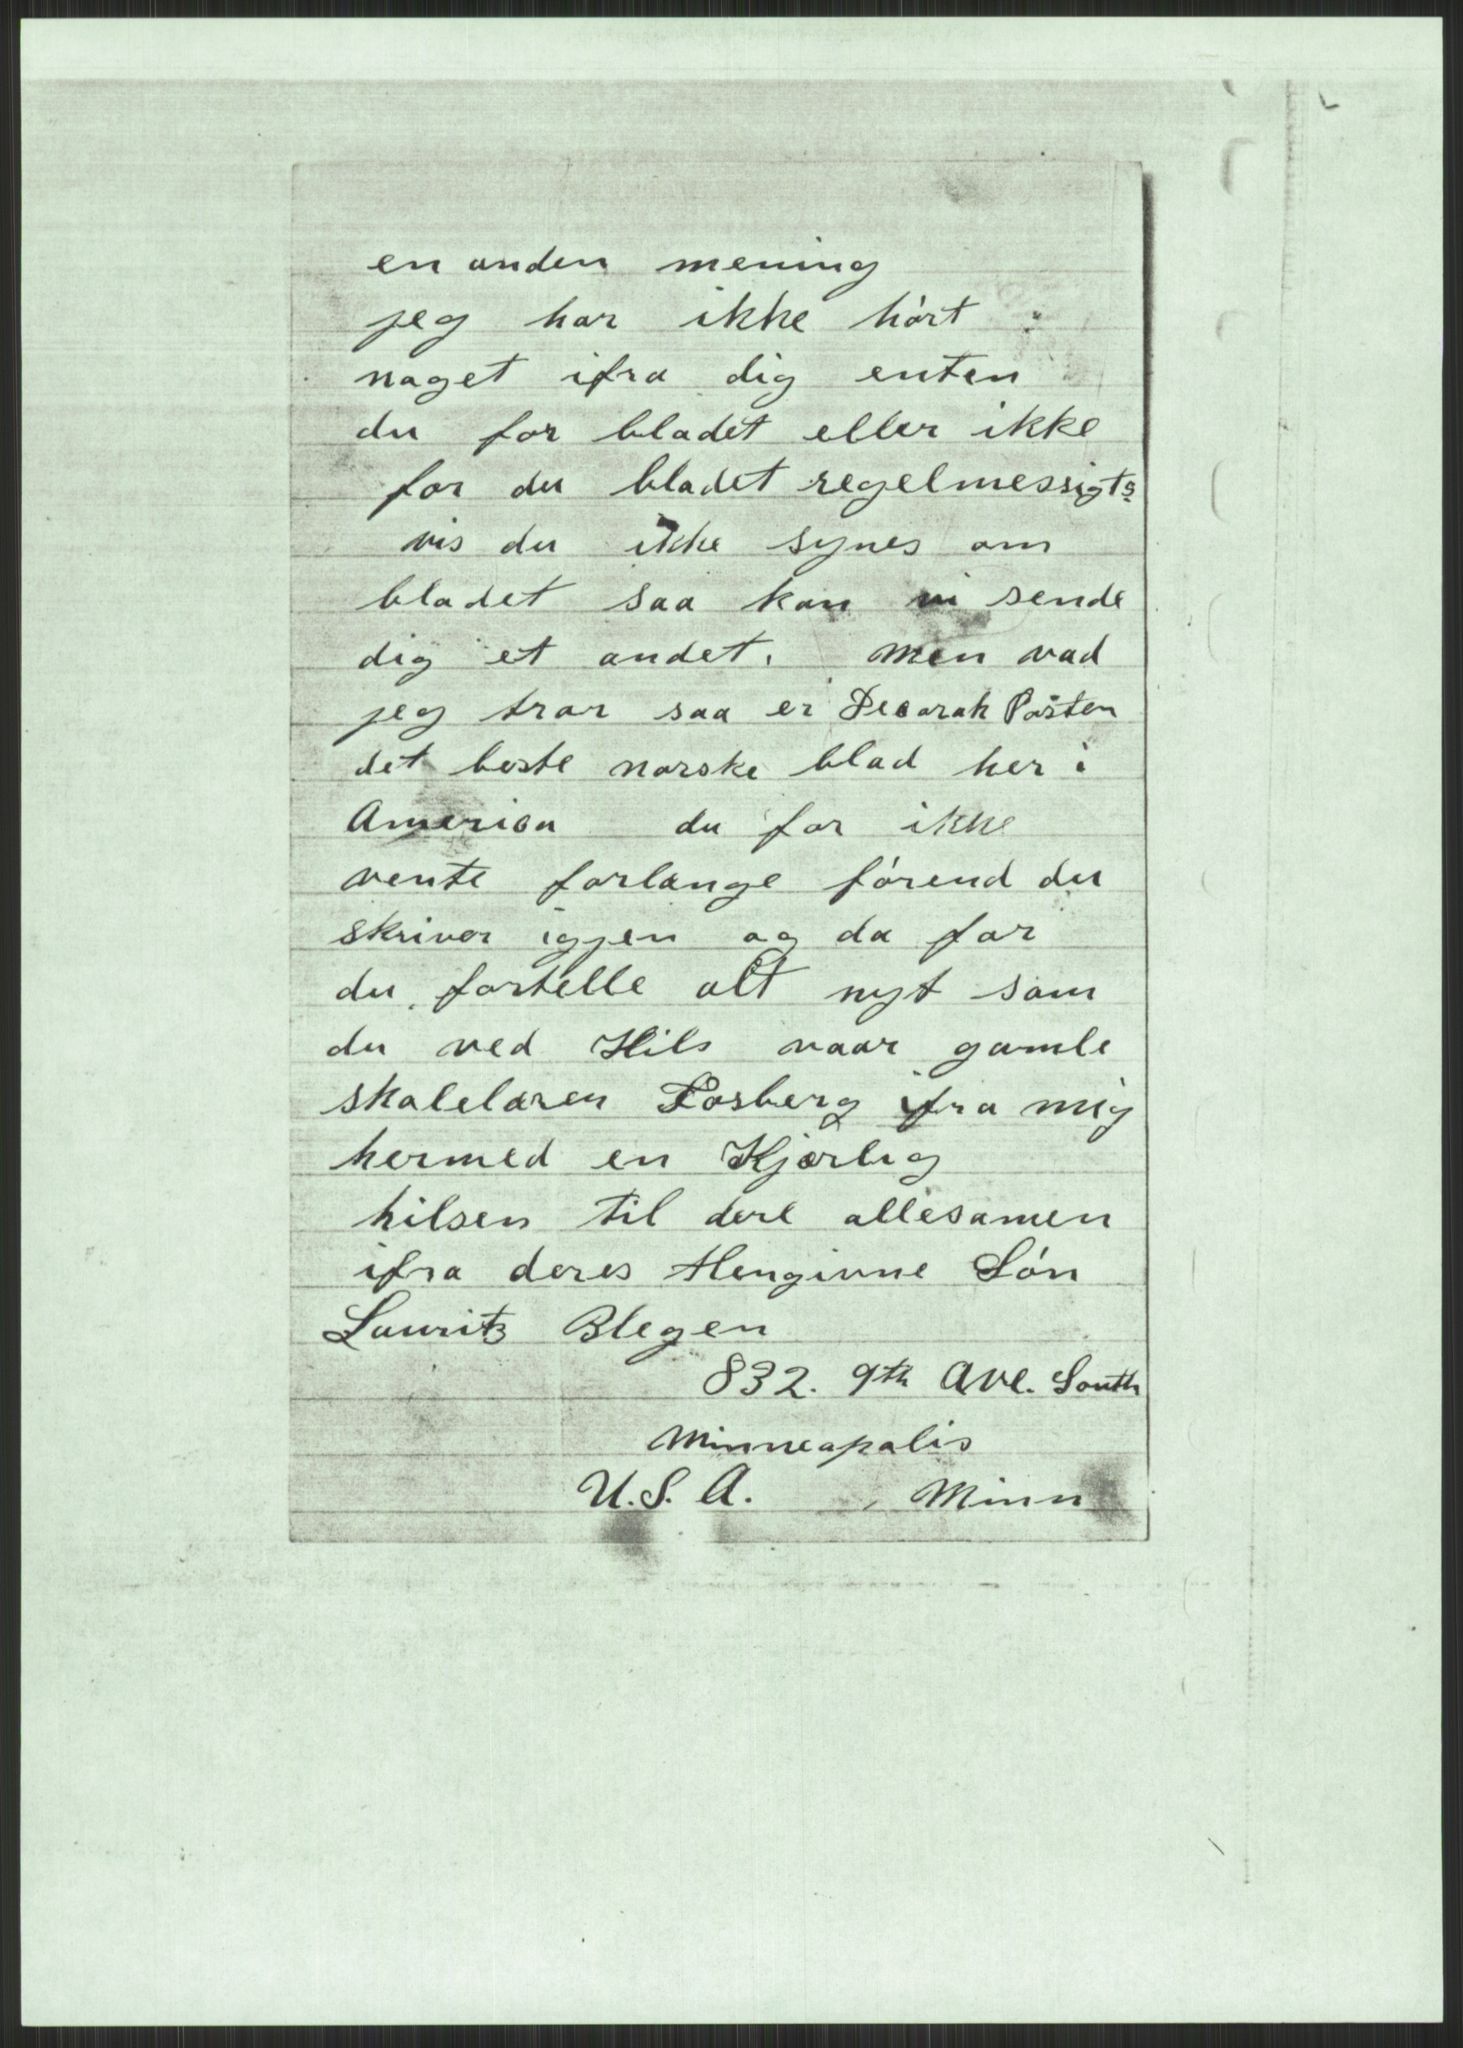 en anden mening
jeg har ikke hørt
noget ifra dig enten
du for bladet eller ikke
for du bladet regelmessigt?
vis du ikke synes om
bladet saa kan vi sende
dig et andet. Men vad
jeg tror saa er Decorah Posten
det beste norske blad her i
America du for ikke
vente forlange førend du
skriver igjen og da for
du fortelle alt nyt som
du ved Hils vaar gamle
skolelæren Losberg ifra mig
hermed en Kjærlig
hilsen til dere allesamen
ifra deres Hengivne Søn
Lauritz Blegen
832. 9th Ave. South
Minneapolis
U.S.A. , Minn